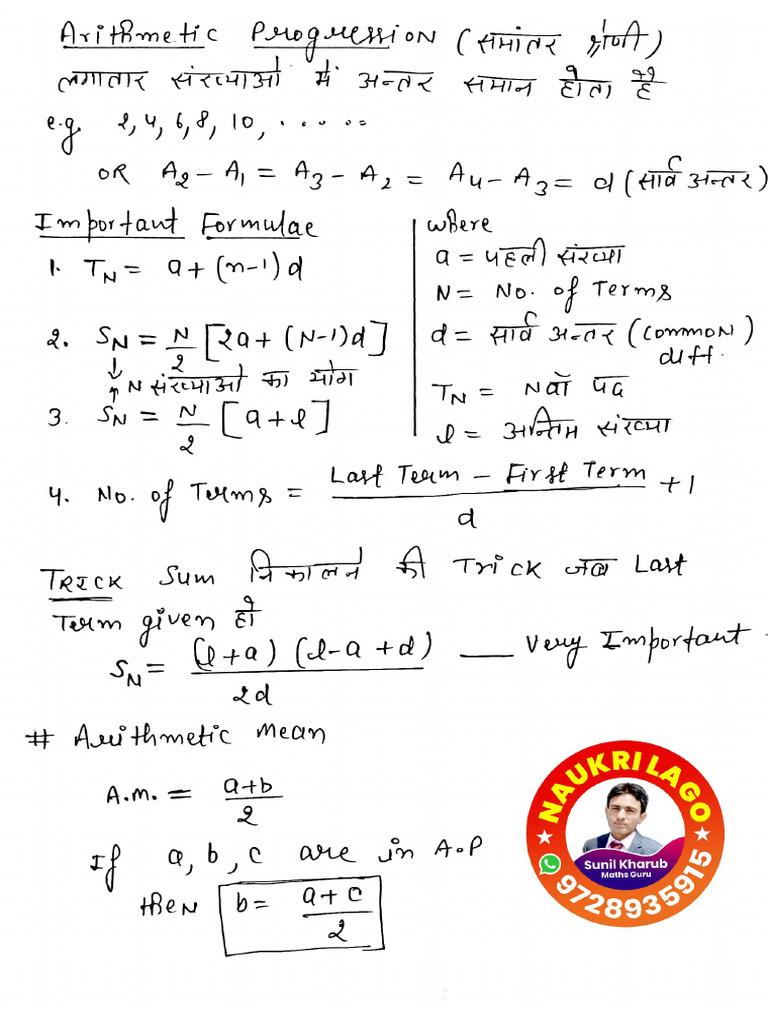 Arithmetic Progression (समांतर श्रेणी)
लगातार संख्याओं में अन्तर समान होता है
e.g. 2, 4, 6, 8, 10, ......
OR A₂ - A₁ = A₃ - A₂ = A₄ - A₃ = d (सार्व अन्तर)
Important Formulae
1. T_N = a + (n-1)d
2. S_N = N/2 [2a + (N-1)d]
↓
↑ N संख्याओं का योग
3. S_N = N/2 [a + l]
4. No. of Terms = (Last Term - First Term)/d + 1
where
a = पहली संख्या
N = No. of Terms
d = सार्व अन्तर (common diff.)
T_N = Nवाँ पद
l = अन्तिम संख्या
TRICK Sum निकालने की Trick जब Last
Term given हो
S_N = (l+a) (l-a+d)/2d — Very Important
# Arithmetic Mean
A.M. = a+b/2
If a, b, c are in A.P
then b = a+c/2
NAUKRI LAGO
Sunil Kharub
Maths Guru
9728935915